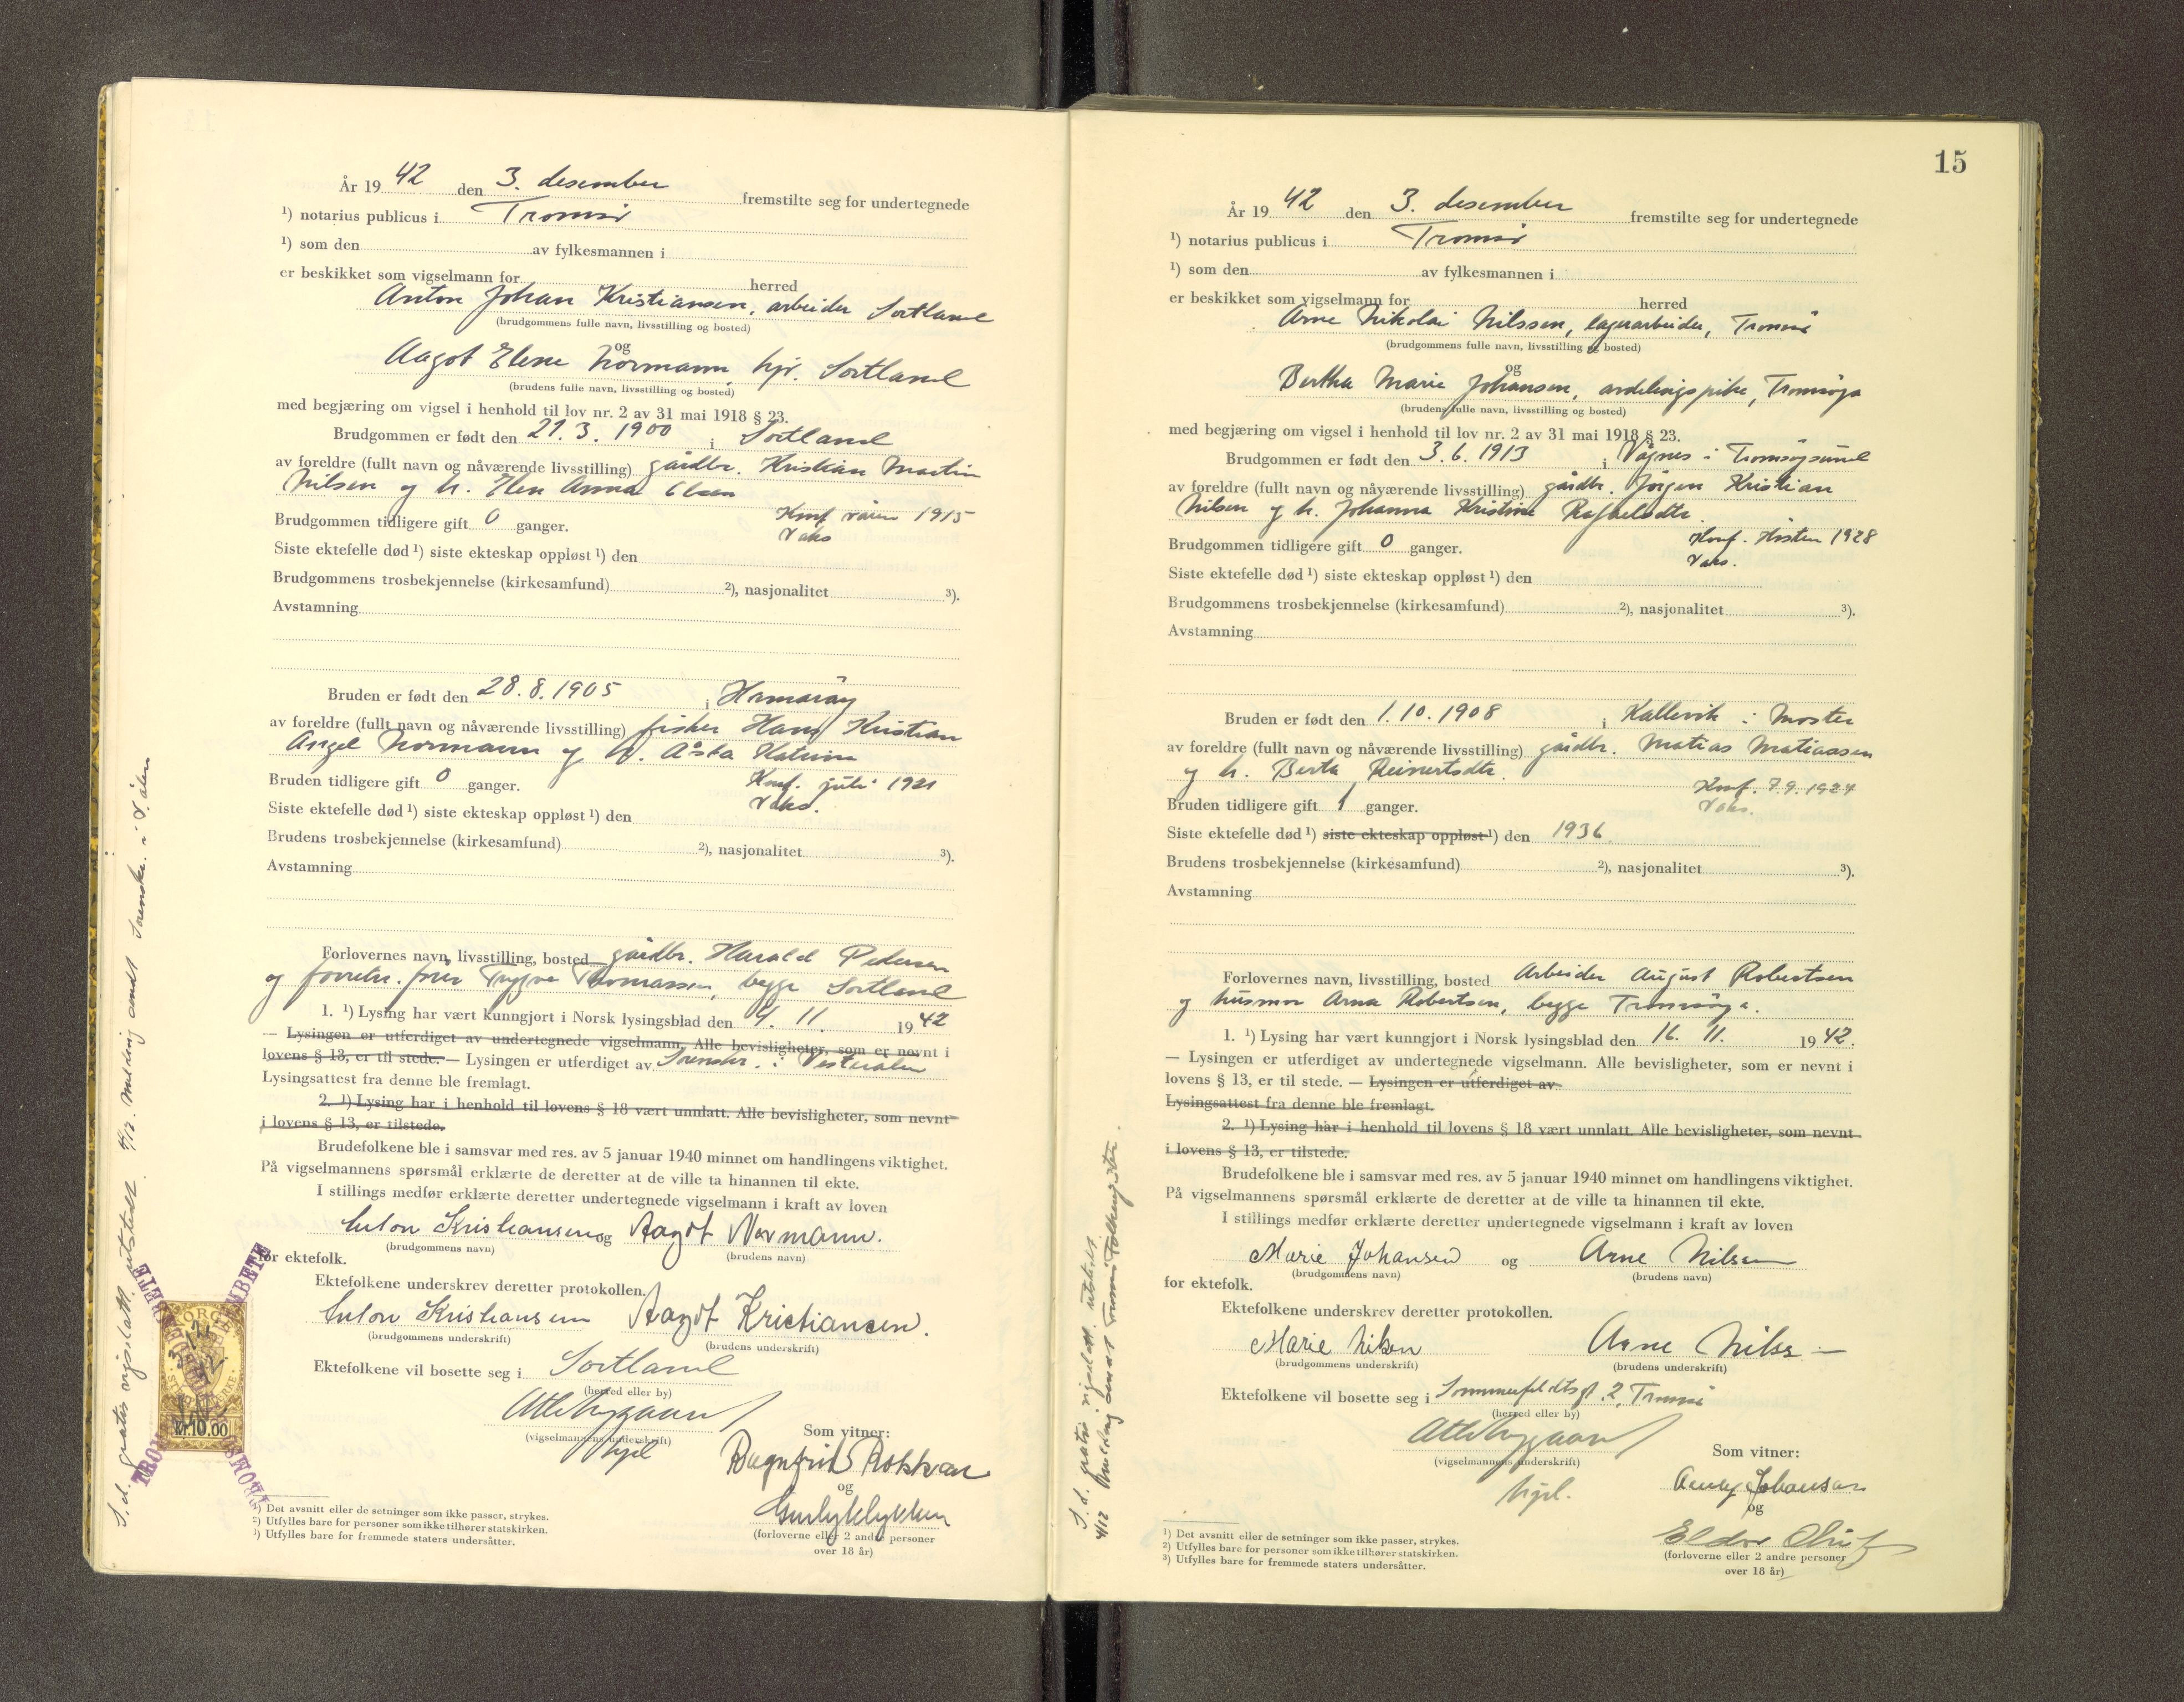 År 19 42 den 3. desember fremstilte seg for undertegnede
¹) notarius publicus i Tromsø
¹) som den av fylkesmannen i
er beskikket som vigselmann for herred
Anton Johan Kristiansen, arbeider Sortland
(brudgommens fulle navn, livsstilling og bosted)
og
Aagot Elene Normann, hjv. Sortland
(brudens fulle navn, livsstilling og bosted)
med begjæring om vigsel i henhold til lov nr. 2 av 31 mai 1918 § 23.
Brudgommen er født den 21. 3. 1900 i Sortland
av foreldre (fullt navn og nåværende livsstilling) gårdbr. Kristian Martin
Nilsen og h. Elen Anna Olsen
Brudgommen tidligere gift 0 ganger. Konf våren 1915
Vaks
Siste ektefelle død ¹) siste ekteskap oppløst ¹) den
Brudgommens trosbekjennelse (kirkesamfund) ²), nasjonalitet ³).
Avstamning
Bruden er født den 28. 8. 1905 i Hamarøy
av foreldre (fullt navn og nåværende livsstilling) fisker Hans Kristian
Angel Normann og h. Åsta Katrine
Bruden tidligere gift 0 ganger. Konf. juli 1921
Vaks.
Siste ektefelle død ¹) siste ekteskap oppløst ¹) den
Brudens trosbekjennelse (kirkesamfund) ²), nasjonalitet ³).
Avstamning
Forlovernes navn, livsstilling, bosted gårdbr. Harald Pedersen
og forretn. fører Trygve Thomassen, begge Sortland
1. ¹) Lysing har vært kunngjort i Norsk lysingsblad den 4. 11. 19 42
— Lysingen er utferdiget av undertegnede vigselmann. Alle bevisligheter, som er nevnt i
lovens § 13, er til stede. — Lysingen er utferdiget av Sorenskr. i Vesterålen
Lysingsattest fra denne ble fremlagt.
2. ¹) Lysing har i henhold til lovens § 18 vært unnlatt. Alle bevisligheter, som nevnt
i lovens § 13, er tilstede.
Brudefolkene ble i samsvar med res. av 5 januar 1940 minnet om handlingens viktighet.
På vigselmannens spørsmål erklærte de deretter at de ville ta hinannen til ekte.
I stillings medfør erklærte deretter undertegnede vigselmann i kraft av loven
Anton Kristiansen og Aagot Normann.
(brudgommens navn) (brudens navn)
for ektefolk.
Ektefolkene underskrev deretter protokollen.
Anton Kristiansen Aagot Kristiansen.
(brudgommens underskrift) (brudens underskrift)
Ektefolkene vil bosette seg i Sortland
(herred eller by)
(vigselmannens underskrift)
Som vitner:
og
(forloverne eller 2 andre personer
over 18 år)
¹) Det avsnitt eller de setninger som ikke passer, strykes.
²) Utfylles bare for personer som ikke tilhører statskirken.
³) Utfylles bare for fremmede staters undersåtter.
S. d. gratis vigselatt. utstedt. 4/12. melding sendt Sorenskr. i V.ålen
NORGE
Kr 10.00
15
År 19 42 den 3. desember fremstilte seg for undertegnede
¹) notarius publicus i Tromsø
¹) som den av fylkesmannen i
er beskikket som vigselmann for herred
Arne Nikolai Nilssen, lagerarbeider, Tromsø
(brudgommens fulle navn, livsstilling og bosted)
og
Bertha Marie Johansen, avdelingspike, Tromsøya
(brudens fulle navn, livsstilling og bosted)
med begjæring om vigsel i henhold til lov nr. 2 av 31 mai 1918 § 23.
Brudgommen er født den 3. 6. 1913 i Vågnes i Tromsøysund
av foreldre (fullt navn og nåværende livsstilling) gårdbr. Jørgen Kristian
Nilsen og h. Johanna Kristine Rafaelsdtr.
Brudgommen tidligere gift 0 ganger. Konf. Høsten 1928
Vaks.
Siste ektefelle død ¹) siste ekteskap oppløst ¹) den
Brudgommens trosbekjennelse (kirkesamfund) ²), nasjonalitet ³).
Avstamning
Bruden er født den 1. 10. 1908 i Kallevik i Moster
av foreldre (fullt navn og nåværende livsstilling) gårdbr. Matias Matiassen
og h. Berta Reinertsdtr.
Bruden tidligere gift 1 ganger. Konf. 7.9.1924
Vaks.
Siste ektefelle død ¹) siste ekteskap oppløst ¹) den 1936
Brudens trosbekjennelse (kirkesamfund) ²), nasjonalitet ³).
Avstamning
Forlovernes navn, livsstilling, bosted Arbeider August Robertsen
og husmor Arna Robertsen, begge Tromsøya.
1. ¹) Lysing har vært kunngjort i Norsk lysingsblad den 16. 11. 19 42.
— Lysingen er utferdiget av undertegnede vigselmann. Alle bevisligheter, som er nevnt i
lovens § 13, er til stede. — Lysingen er utferdiget av
Lysingsattest fra denne ble fremlagt.
2. ¹) Lysing har i henhold til lovens § 18 vært unnlatt. Alle bevisligheter, som nevnt
i lovens § 13, er tilstede.
Brudefolkene ble i samsvar med res. av 5 januar 1940 minnet om handlingens viktighet.
På vigselmannens spørsmål erklærte de deretter at de ville ta hinannen til ekte.
I stillings medfør erklærte deretter undertegnede vigselmann i kraft av loven
Marie Johansen og Arne Nilsen
(brudgommens navn) (brudens navn)
for ektefolk.
Ektefolkene underskrev deretter protokollen.
Marie Nilsen Arne Nilsen
(brudgommens underskrift) (brudens underskrift)
Ektefolkene vil bosette seg i Sommerfeldtsgt. 2, Tromsø
(herred eller by)
(vigselmannens underskrift)
Som vitner:
Johansen
og
(forloverne eller 2 andre personer
over 18 år)
¹) Det avsnitt eller de setninger som ikke passer, strykes.
²) Utfylles bare for personer som ikke tilhører statskirken.
³) Utfylles bare for fremmede staters undersåtter.
S. d. gratis vigselatt. utstedt.
4/12 melding sendt Tromsø Folkeregister.